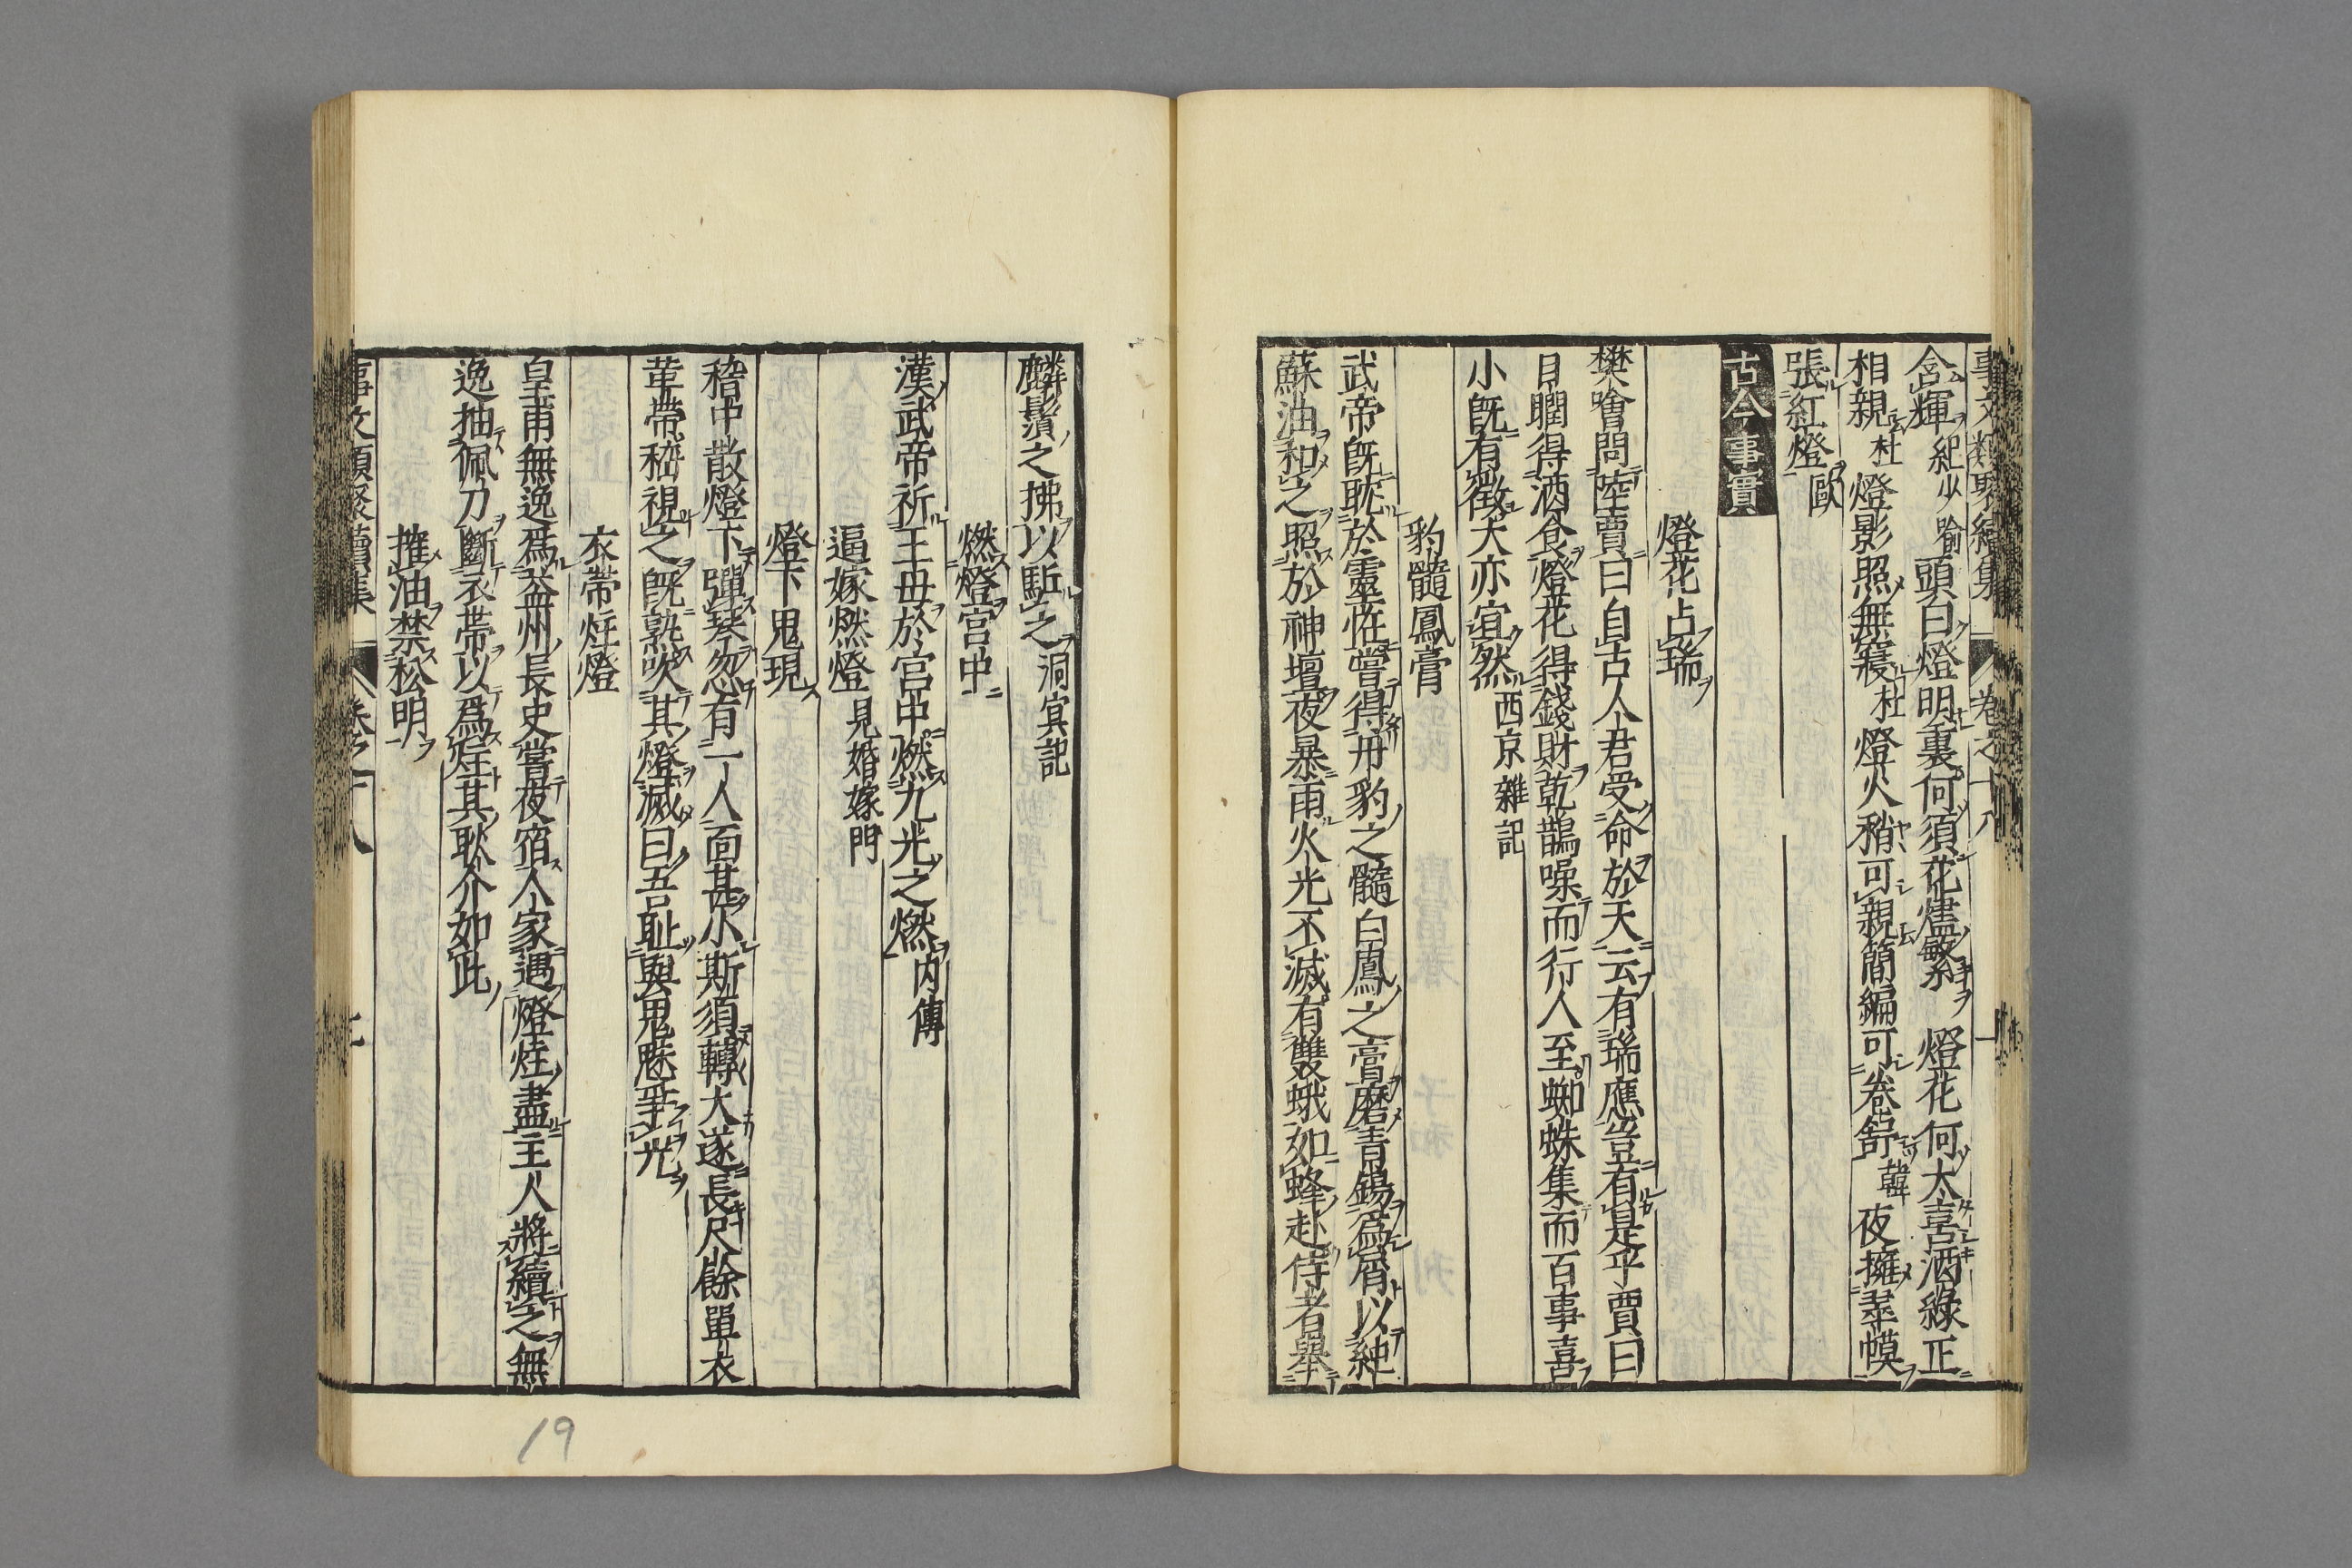 事文類聚續集 卷之十八
含輝紀少喻頭白燈明裏何須花燼繁 燈花何太喜酒綠正
相親杜 燈影照無寢杜 燈火稍可親簡編可卷舒韓 夜擁翠幙
張紅燈歐
古今事實
燈花占瑞
樊噲問陸賈曰自古人君受命於天云有瑞應豈有是乎賈曰
目瞤得酒食燈花得錢財乾鵲噪而行人至蜘蛛集而百事喜
小既有徵大亦宜然西京雜記
豹髓鳳膏
武帝既耽於靈怪嘗得丹豹之髓白鳳之膏磨青錫爲屑以純
蘇油和之照於神壇夜暴雨火光不滅有雙蛾如蜂赴侍者舉
麟鬚之拂以駈之洞冥記
燃燈宮中
漢武帝祈王母於宮中燃九光之燃内傳
逼嫁燃燈見婚嫁門
燈下鬼現
稽中散燈下彈琴忽有一人面甚小斯須轉大遂長尺餘單衣
革帶嵇視之既熟吹其燈滅曰吾恥與鬼魅爭光
衣帶炷燈
皇甫無逸爲益州長史嘗夜宿人家遇燈炷盡主人將續之無
逸抽佩刀斷衣帶以爲炷其耿介如此
搉油禁松明
事文類聚續集 卷之十八
19